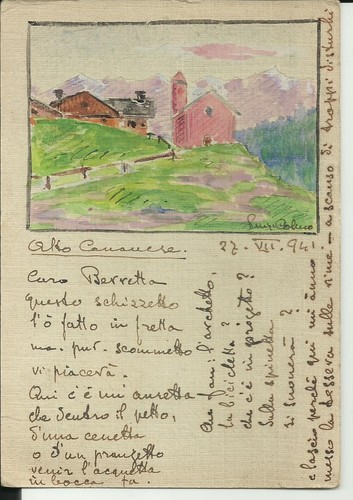 Alto Canavese. 27. VII. 941-
Caro Berretta
questo schizzetto
l'ò fatto in fretta
ma pur scommetto
vi piacerà.
Qui c'è un'auretta
che dentro il petto,
d'una cenetta
o d'un pranzetto
venir l'acquetta
in bocca fa.
Che fan: l'archetto,
la bicicletta?
che c'è in progetto?
Sulla spinetta
si suonerà?
e lascio perchè qui mi ànno
messo la tessera sulle rime — a scanso di troppi disturbi